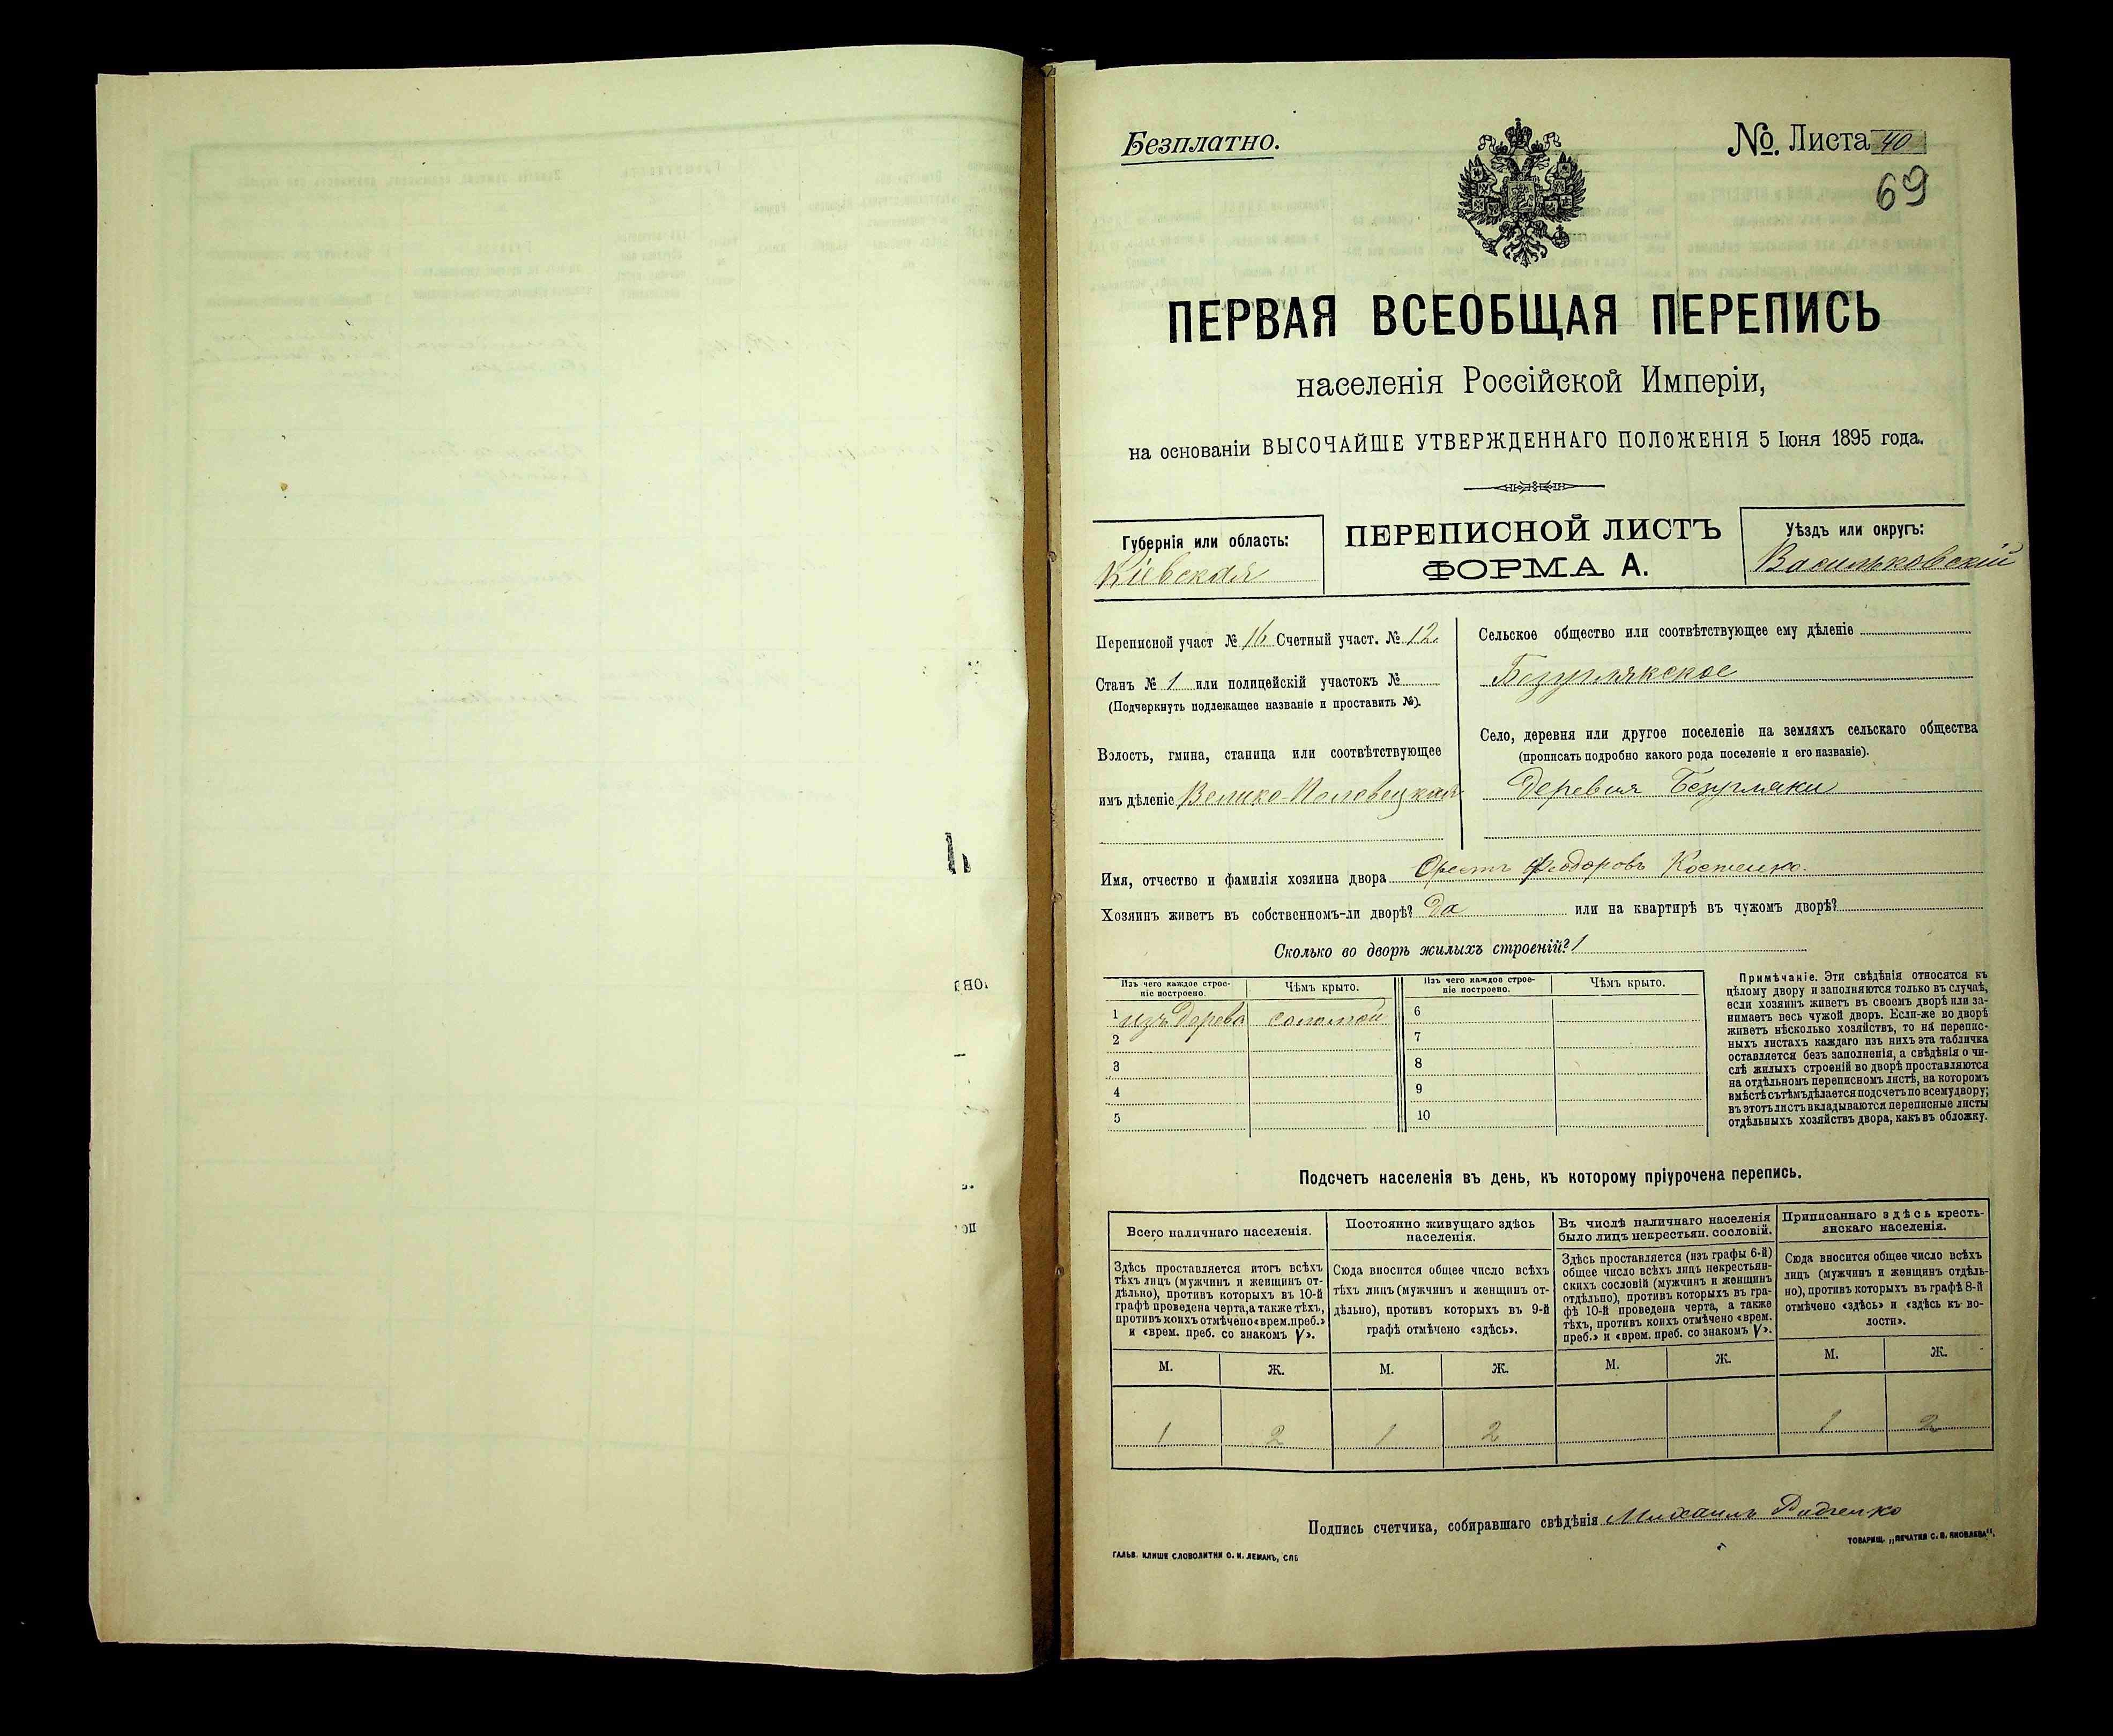 Безплатно.
№. Листа 40
69
ПЕРВАЯ ВСЕОБЩАЯ ПЕРЕПИСЬ
населенія Россійской Имперіи,
на основаніи ВЫСОЧАЙШЕ УТВЕРЖДЕННАГО ПОЛОЖЕНІЯ 5 Іюня 1895 года.
Губернія или область:
Кіевская
ПЕРЕПИСНОЙ ЛИСТЪ
ФОРМА А.
Уѣздъ или округъ:
Васильковскій
Переписной участ № 16 Счетный участ. № 12.
Станъ № 1 или полицейскій участокъ №
(Подчеркнуть подлежащее названіе и проставить №).
Волость, гмина, станица или соотвѣтствующее
имъ дѣленіе Велико-Половецкая
Сельское общество или соотвѣтствующее ему дѣленіе
Безуглякское
Село, деревня или другое поселеніе на земляхъ сельскаго общества
(прописать подробно какого рода поселеніе и его названіе).
Деревня Безугляки
Имя, отчество и фамилія хозяина двора Орестъ Ѳеодоровъ Костенко.
Хозяинъ живетъ въ собственномъ-ли дворѣ? Да или на квартирѣ въ чужомъ дворѣ?
Сколько во дворѣ жилыхъ строеній? 1
Изъ чего каждое строе-
ніе построено.
Чѣмъ крыто.
Изъ чего каждое строе-
ніе построено.
Чѣмъ крыто.
1 изъ дерева соломой 6
2 7
3 8
4 9
5 10
Примѣчаніе. Эти свѣдѣнія относятся къ
цѣлому двору и заполняются только въ случаѣ,
если хозяинъ живетъ въ своемъ дворѣ или за-
нимаетъ весь чужой дворъ. Если-же во дворѣ
живетъ нѣсколько хозяйствъ, то на перепис-
ныхъ листахъ каждаго изъ нихъ эта табличка
оставляется безъ заполненія, а свѣдѣнія о чи-
слѣ жилыхъ строеній во дворѣ проставляются
на отдѣльномъ переписномъ листѣ, на которомъ
вмѣстѣ съ тѣмъ дѣлается подсчетъ по всему двору;
въ этотъ листъ вкладываются переписные листы
отдѣльныхъ хозяйствъ двора, какъ въ обложку.
Подсчетъ населенія въ день, къ которому пріурочена перепись.
Всего наличнаго населенія.
Здѣсь проставляется итогъ всѣхъ
тѣхъ лицъ (мужчинъ и женщинъ от-
дѣльно), противъ которыхъ въ 10-й
графѣ проведена черта, а также тѣхъ,
противъ коихъ отмѣчено «врем. преб.»
и «врем. преб. со знакомъ V».
Постоянно живущаго здѣсь
населенія.
Сюда вносится общее число всѣхъ
тѣхъ лицъ (мужчинъ и женщинъ от-
дѣльно), противъ которыхъ въ 9-й
графѣ отмѣчено «здѣсь».
Въ числѣ наличнаго населенія
было лицъ некрестьян. сословій.
Здѣсь проставляется (изъ графы 6-й)
общее число всѣхъ лицъ некрестьян-
скихъ сословій (мужчинъ и женщинъ
отдѣльно), противъ которыхъ въ гра-
фѣ 10-й проведена черта, а также
тѣхъ, противъ коихъ отмѣчено «врем.
преб.» и «врем. преб. со знакомъ V».
Приписаннаго здѣсь кресть-
янскаго населенія.
Сюда вносится общее число всѣхъ
лицъ (мужчинъ и женщинъ отдѣль-
но), противъ которыхъ въ графѣ 8-й
отмѣчено «здѣсь» и «здѣсь къ во-
лости».
М. Ж. М. Ж. М. Ж. М. Ж.
1 2 1 2 1 2
Подпись счетчика, собиравшаго свѣдѣнія Михаилъ Радченко
ГАЛЬВ. КЛИШЕ СЛОВОЛИТНИ О. И. ЛЕМАНЪ, СПБ
ТОВАРИЩ. „ПЕЧАТНЯ С. П. ЯКОВЛЕВА".